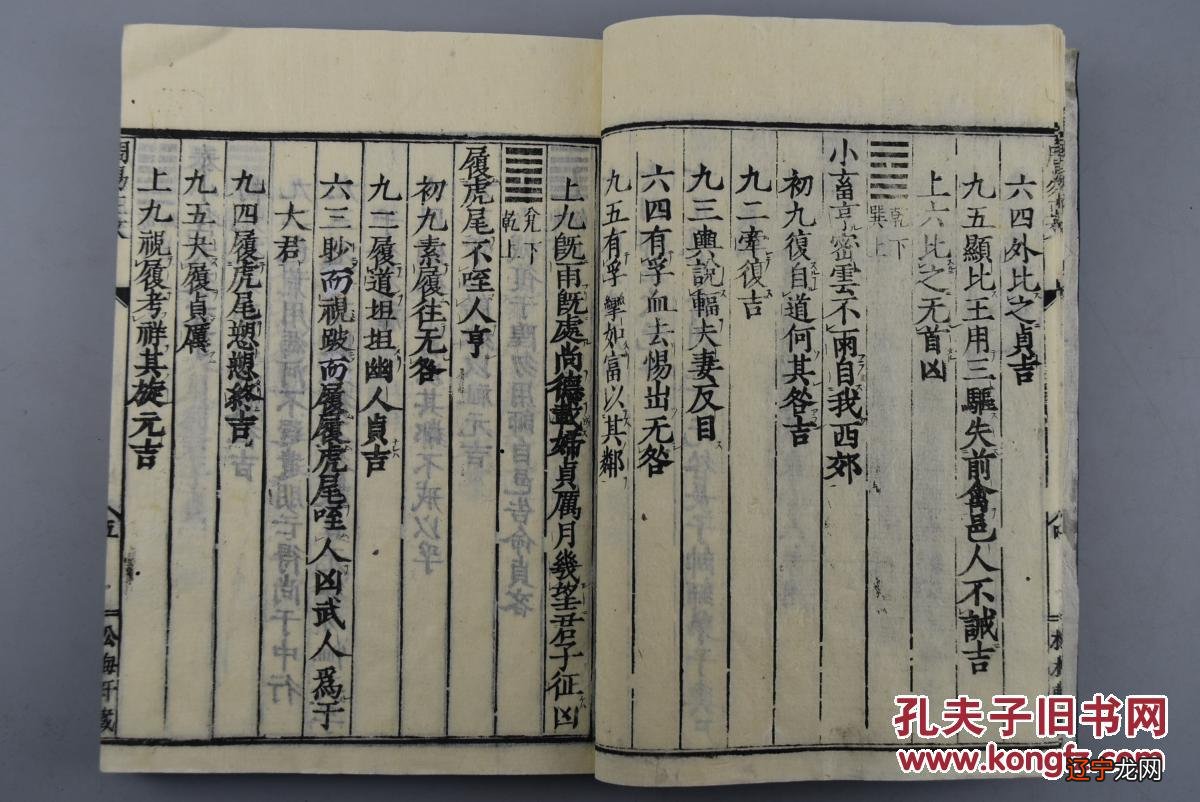 六四外比之貞吉
九五顯比王用三驅失前禽邑人不誡吉
上六比之无首凶
乾下
巽上
小畜亨密雲不雨自我西郊
初九復自道何其咎吉
九二牽復吉
九三輿說輻夫妻反目
六四有孚血去惕出无咎
九五有孚攣如富以其鄰
上九旣雨旣處尚德載婦貞厲月幾望君子征凶
兌下
乾上
履虎尾不咥人亨
初九素履往无咎
九二履道坦坦幽人貞吉
六三眇而視跛而履履虎尾咥人凶武人爲于
大君
九四履虎尾愬愬終吉
九五夬履貞厲
上九視履考祥其旋元吉
五
孔夫子旧书网
www.kongfz.com
辽宁龙网